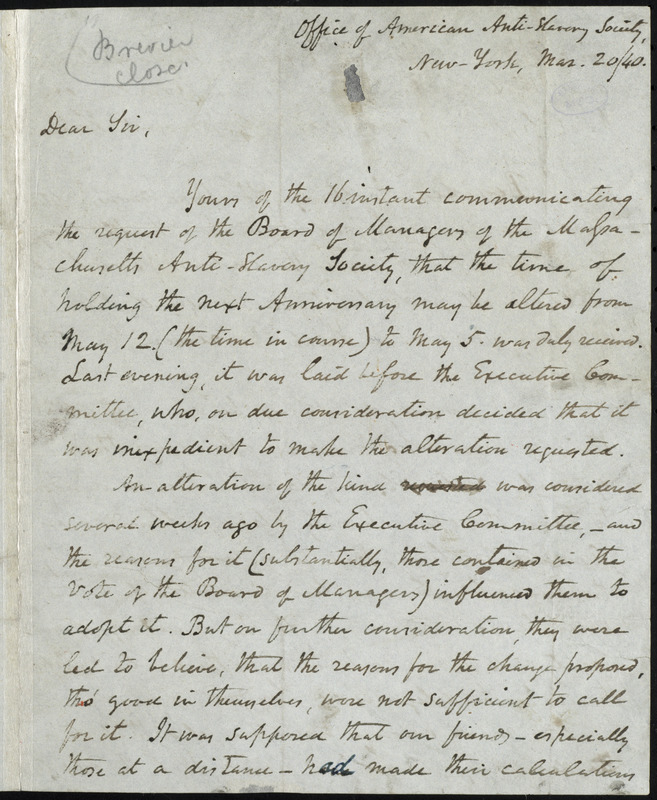 Brevier
close.
Office of American Anti-Slavery Society,
New-York, Mar. 20/40.
Dear Sir,
Yours of the 16 instant communicating
the request of the Board of Managers of the Massa-
chusetts Anti-Slavery Society, that the time of
holding the next Anniversary may be altered from
May 12. (the time in course) to May 5. was duly received.
Last evening, it was laid before the Executive Com-
mittee, who, on due consideration decided that it
was inexpedient to make the alteration requested.
An alteration of the kind was considered
several weeks ago by the Executive Committee, - and
the reasons for it (substantially, those contained in the
Vote of the Board of Managers) influenced them to
adopt it. But on further consideration, they were
led to believe, that the reasons for the change proposed,
tho' good in themselves, were not sufficient to call
for it. It was supposed that our friends - especially
those at a distance - had made their calculations